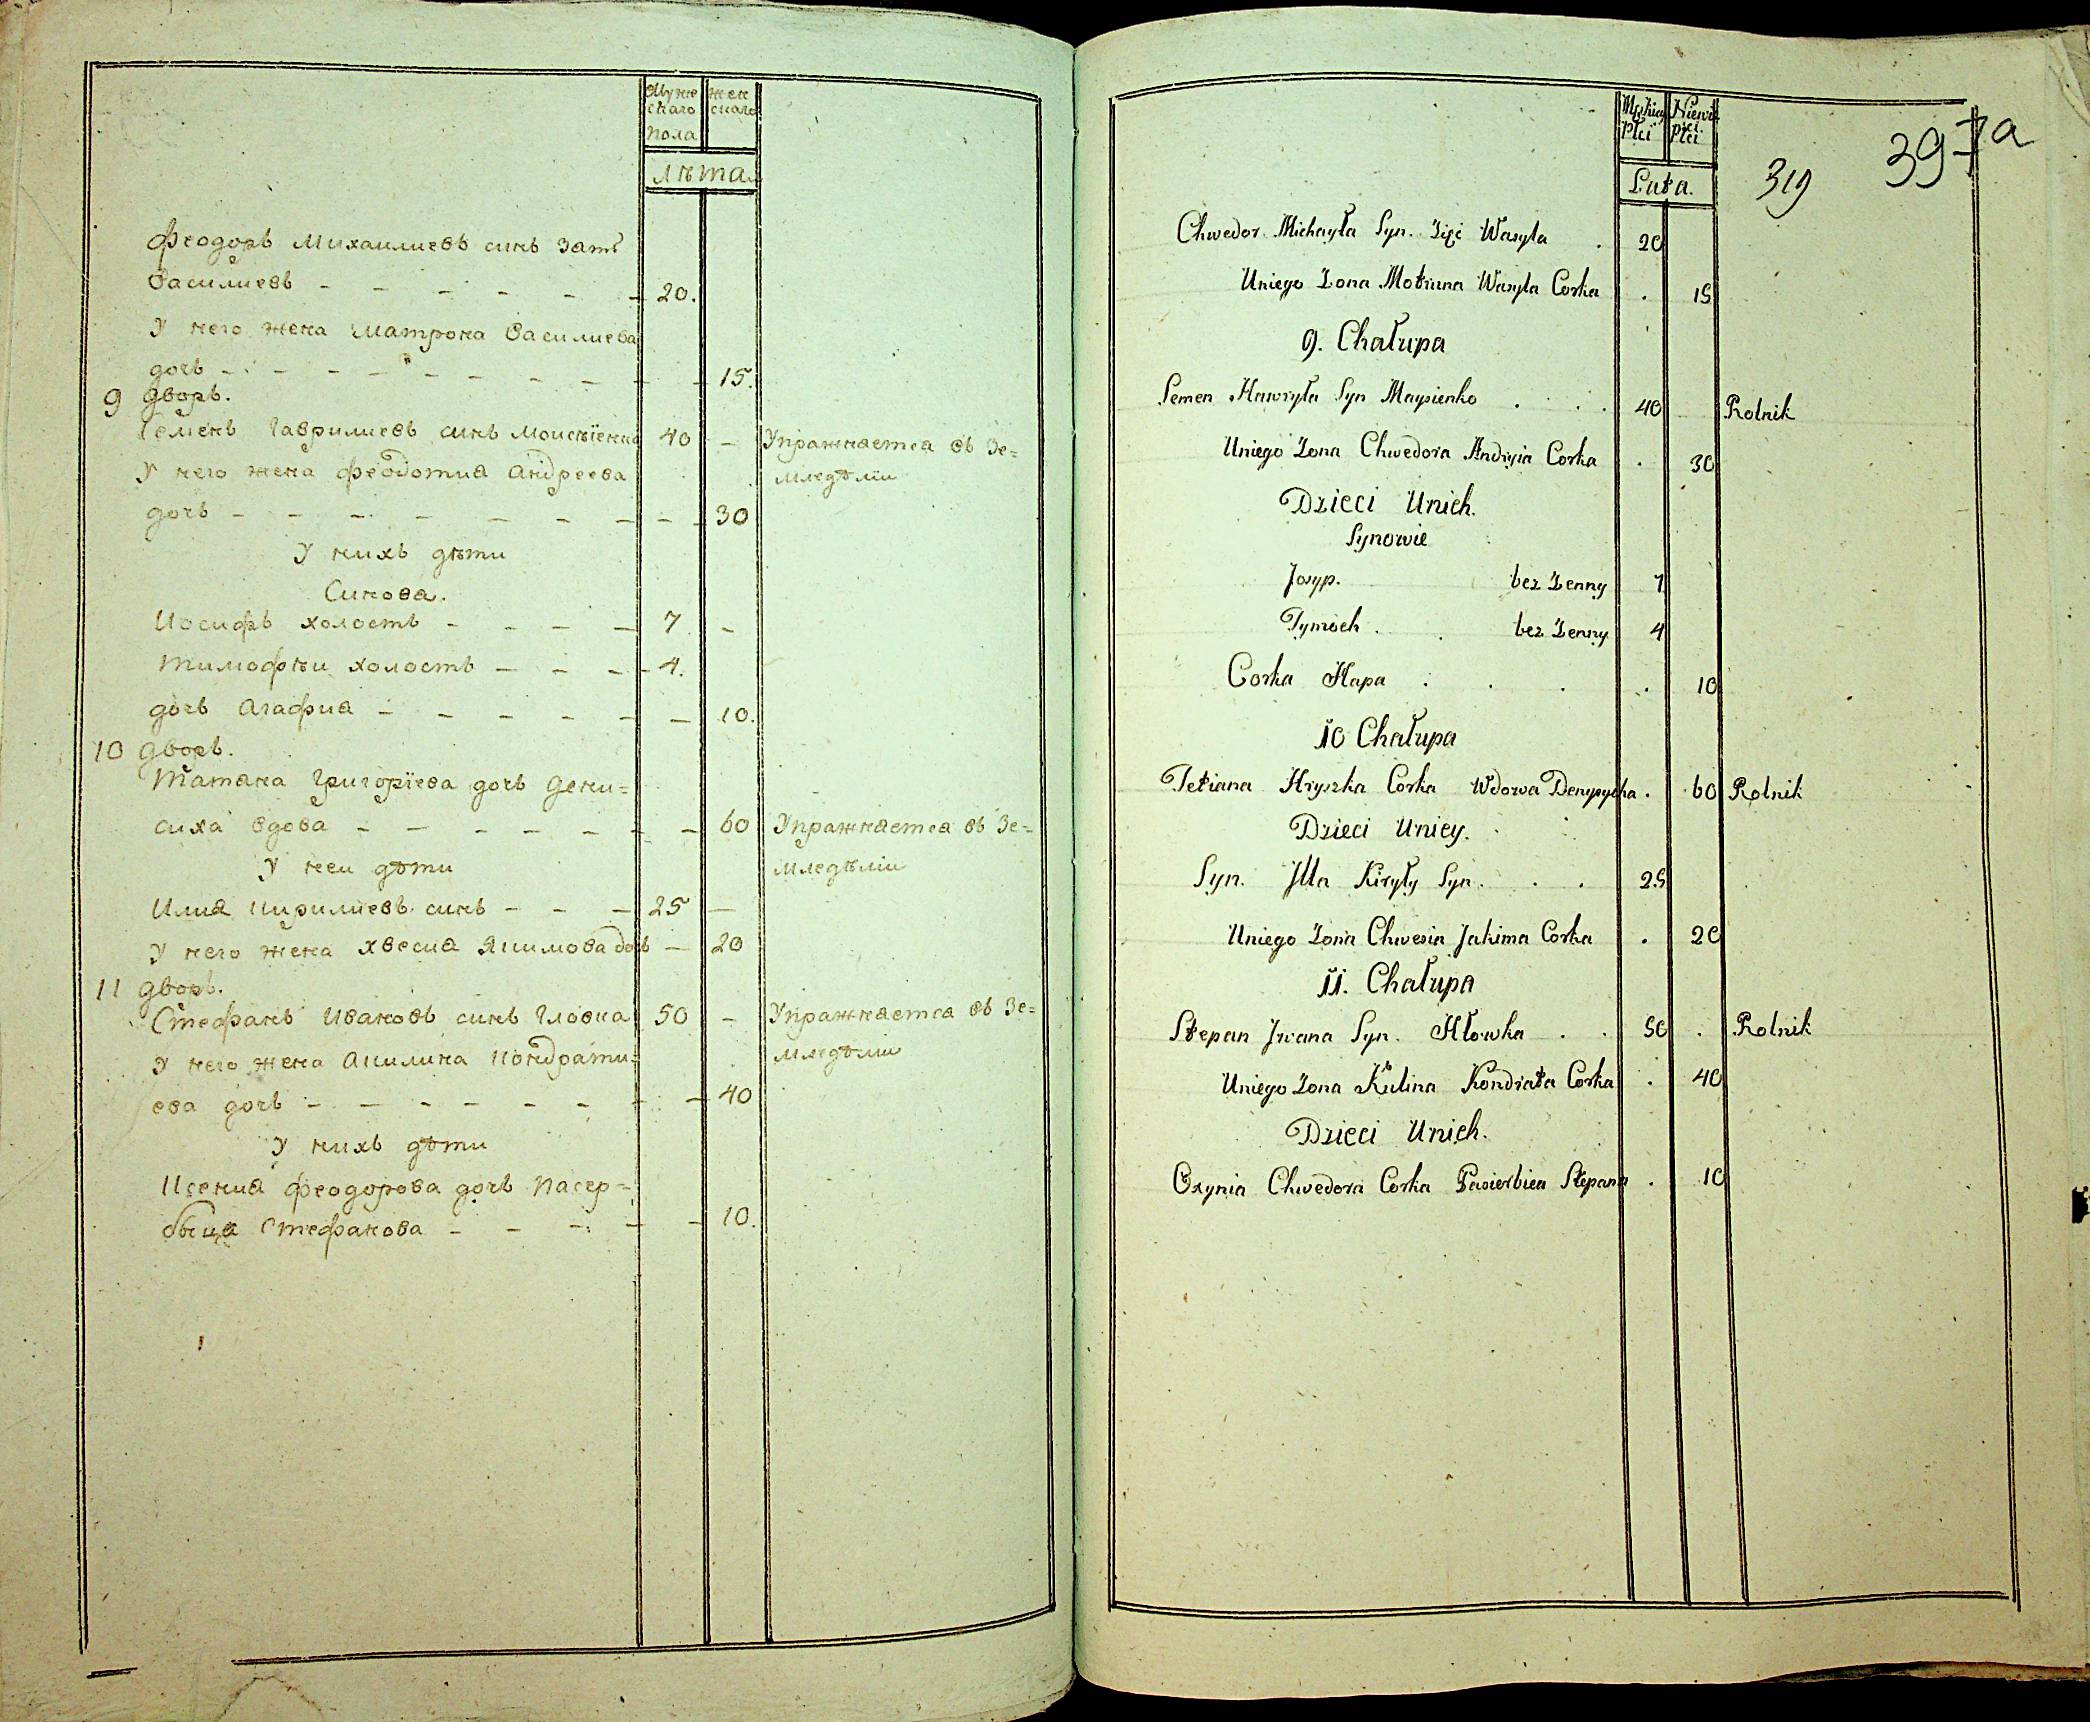 Муже
скаго
пола
жен
скаго
Лѣта.
Феодоръ Михаилиевъ синъ Зать
Василиевъ - - - - - - 20.
У него жена Матрона Василиева
дочь - - - - - - - - - 15.
9 дворъ.
Семенъ Гаврилиевъ синъ Моисѣенко 40 - Упражнается въ Зе=
У него жена Феодотиа Андреева мледѣліи
дочь - - - - - - - - 30
У нихъ дѣти
Синова.
Иосифъ холостъ - - - - 7 -
Тимофѣи холостъ - - - - 4.
дочь Агафиа - - - - - - 10.
10 дворъ.
Татана Григорїева дочь Дени=
сиха вдова - - - - - - - 60 Упражнается въ Зе=
У неи дѣти мледѣліи
Илиа Кирилиевъ синъ - - - 25 -
У него жена Хвесиа Якимова дочь - 20
11 дворъ.
Стефанъ Ивановъ синъ Гловка 50 - Упражнается въ Зе=
У него жена Акилина Кондрати= мледѣліи
ева дочь - - - - - - - - 40
У нихъ дѣти
Ксениа Феодорова дочь Пасер=
бица Стефанова - - - - - 10.
Męzkiey
Płci
Niewie
Płci
Lata.
319
397a
Chwedor Michayła Syn. Zięć Wasyla . 20
Uniego Zona Motruna Wasyla Corka . 15
9. Chałupa
Semen Hawryła Syn Maysienko . . . . 40 Rolnik
Uniego Zona Chwedora Andryia Corka . 30
Dzieci Unich.
Synowie
Josyp. bez Zenny 7
Tymoch . . bez Zenny 4
Corka Hapa . . . . 10
10 Chałupa
Tetiana Hryszka Corka Wdowa Denysycha . 60 Rolnik
Dzieci Uniey.
Syn. Illa Kiryły Syn . . . 25
Uniego Zona Chwesia Jakima Corka . 20
11. Chałupa
Stepan Jwana Syn. Hłowka . . 50 . Rolnik
Uniego Zona Kulina Kondrata Corka . 40
Dzieci Unich.
Oxynia Chwedora Corka Pasierbica Stepana . 10